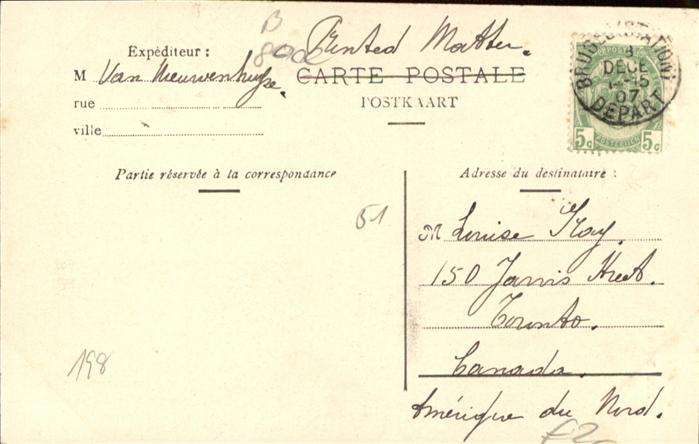 B
Printed Matter.
Expéditeur :
M Van Nieuwenhuyse.
rue
ville
CARTE POSTALE
POSTKAART
BRUGES (STATION)
8
DECE
07
DEPART
5c 5c
Partie réservée à la correspondance
Adresse du destinataire :
51
M Louise Kay.
150 Jarvis Street.
Toronto.
Canada.
Amérique du Nord.
198
£2